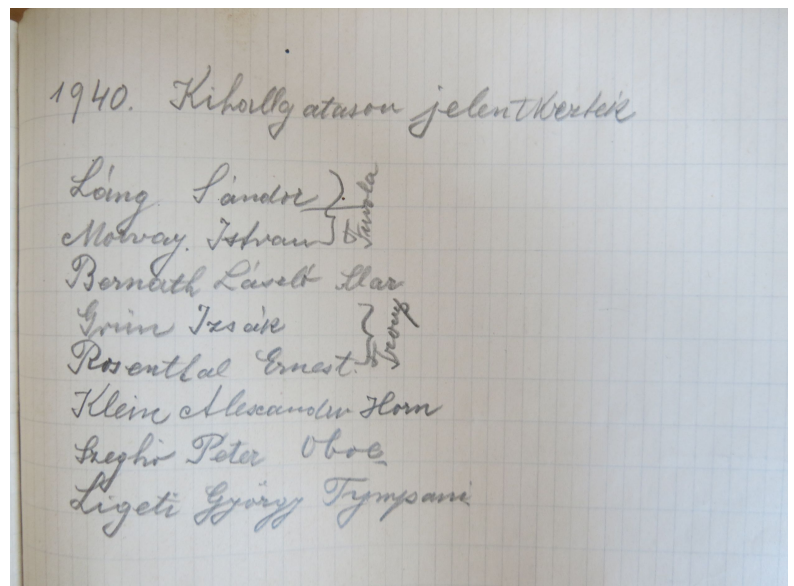 1940. Kihallgatason jelentkeztek
Láng Sándor } Fuvola
Morvay. Istvan
Bernath László Klar
Grün Izsák } Tromp
Rosenthal Ernest.
Klein Alexandru Horn
Szeghő Péter Oboe
Ligeti György Tympani